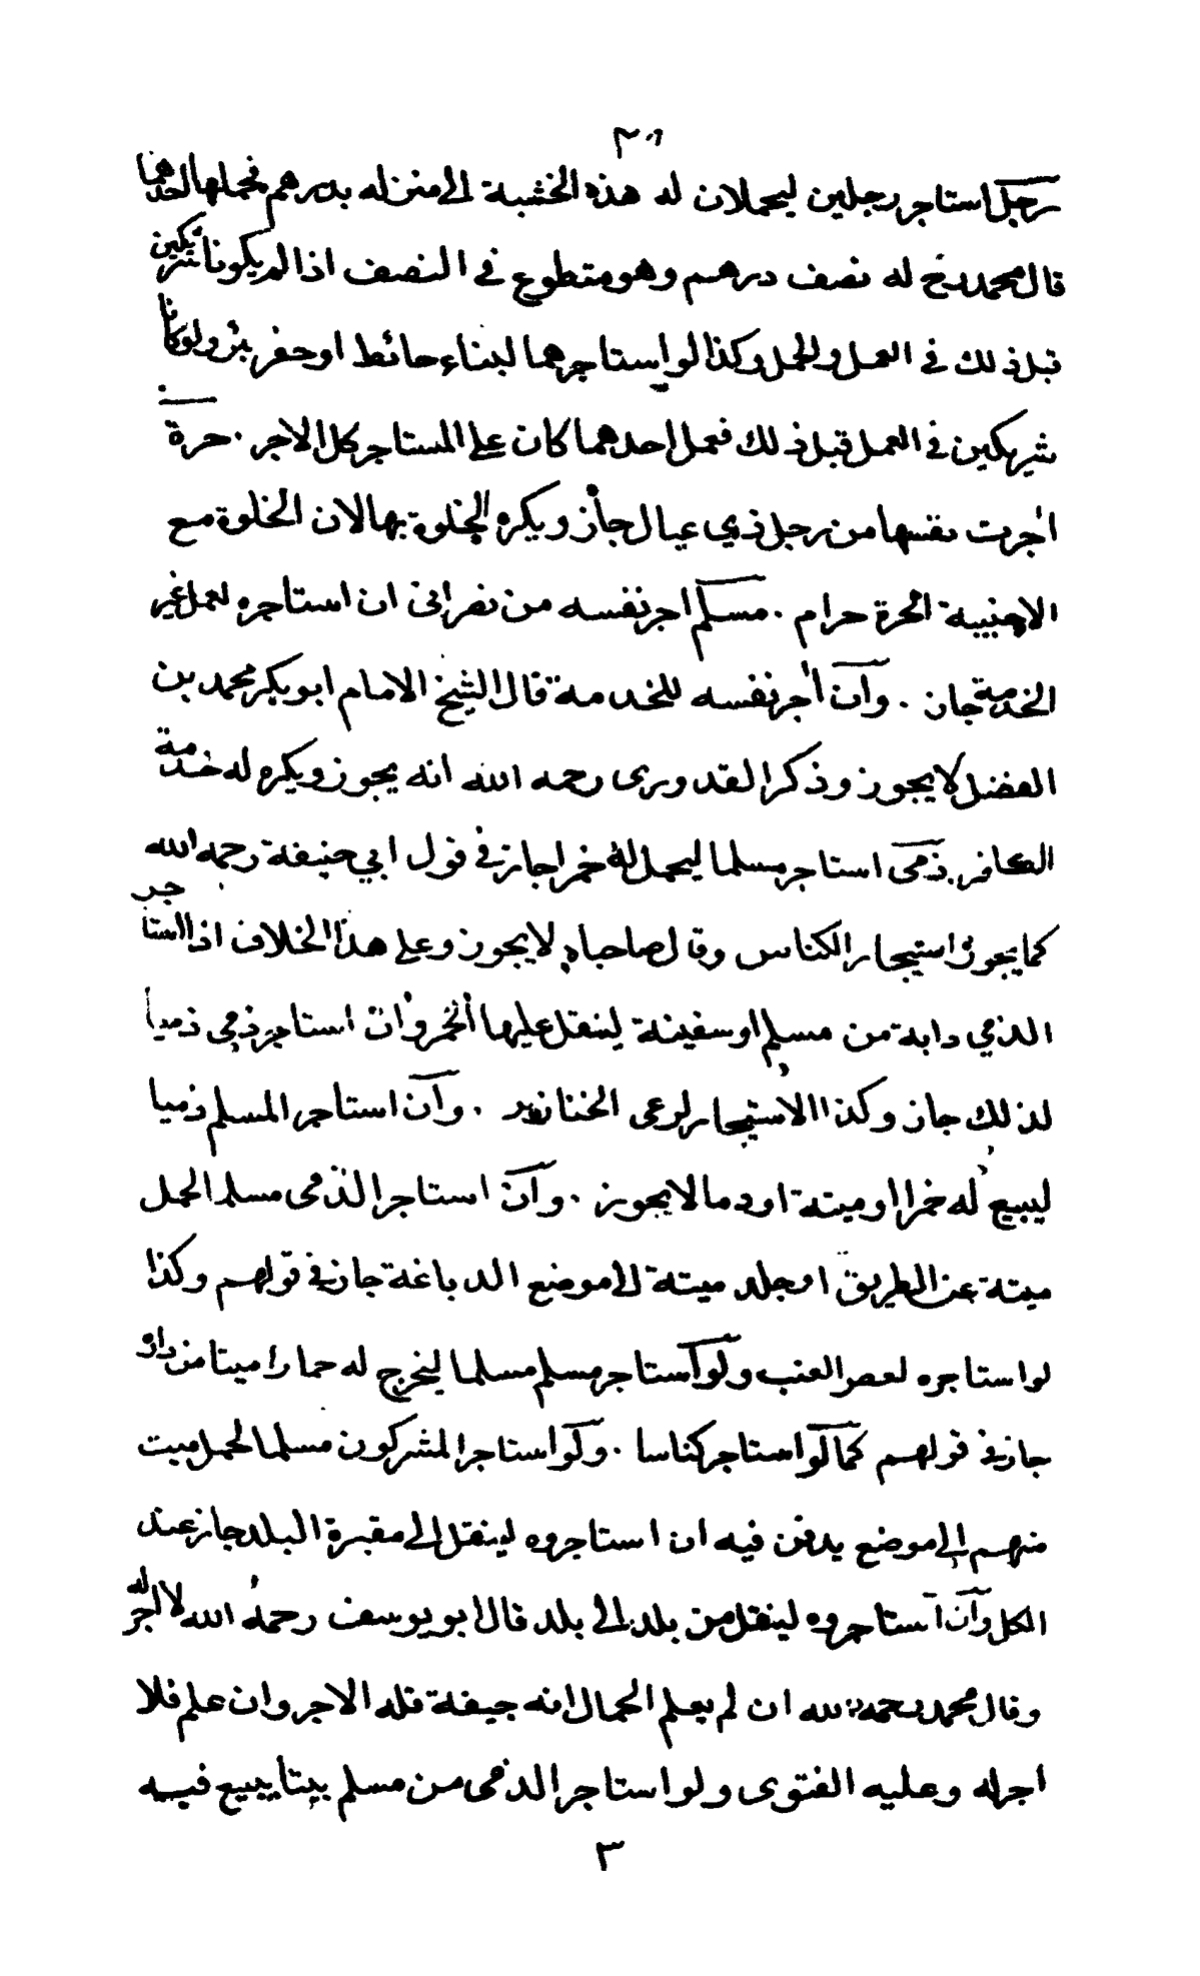 رجل استاجر رجلين ليحملان له هذه الخشبة الى منزله بدرهم فحملها احدهما
قال محمد رح له نصف درهم وهو متطوع في النصف اذا لم يكونا شريكين
قبل ذلك في العمل والحمل وكذا لو استاجرهما لبناء حائط او حفر بئر ولو كانا
شريكين في العمل قبل ذلك فعمل احدهما كان على المستاجر كل الاجر . حرة
اجرت نفسها من رجل ذي عيال جاز ويكره الخلوة بها لان الخلوة مع
الاجنبية الحرة حرام . مسلم اجر نفسه من نصراني ان استاجره لعمل غير
الخدمة جاز . وان اجر نفسه للخدمة قال الشيخ الامام ابو بكر محمد بن
الفضل لا يجوز وذكر القدورى رحمه الله انه يجوز ويكره له خدمة
الكافر . ذمى استاجر مسلما ليحمل له خمرا جاز في قول ابي حنيفة رحمه الله
كما يجوز استيجار الكناس وقال صاحباه لا يجوز وعلى هذا الخلاف اذا استاجر
الذمي دابة من مسلم او سفينة لينقل عليها الخمر وان استاجر ذمي ذميا
لذلك جاز وكذا الاستيجار لرعى الخنازير . وان استاجر المسلم ذميا
ليبيع له خمرا او ميتة او دما لا يجوز . وان استاجر الذمى مسلما لحمل
ميتة عن الطريق او جلد ميتة الى موضع الدباغة جاز في قولهم وكذا
لو استاجره لعصر العنب ولو استاجر مسلم مسلما ليخرج له حمارا ميتا من داره
جاز في قولهم كما لو استاجر كناسا . ولو استاجر المشركون مسلما لحمل ميت
منهم الى موضع يدفن فيه ان استاجروه لينقل الى مقبرة البلد جاز عند
الكل وان استاجروه لينقل من بلد الى بلد قال ابو يوسف رحمه الله لا اجر له
وقال محمد رحمه الله ان لم يعلم الحمال انه جيفة فله الاجر وان علم فلا
اجر له وعليه الفتوى ولو استاجر الذمى من مسلم بيتا يبيع فيه
٣